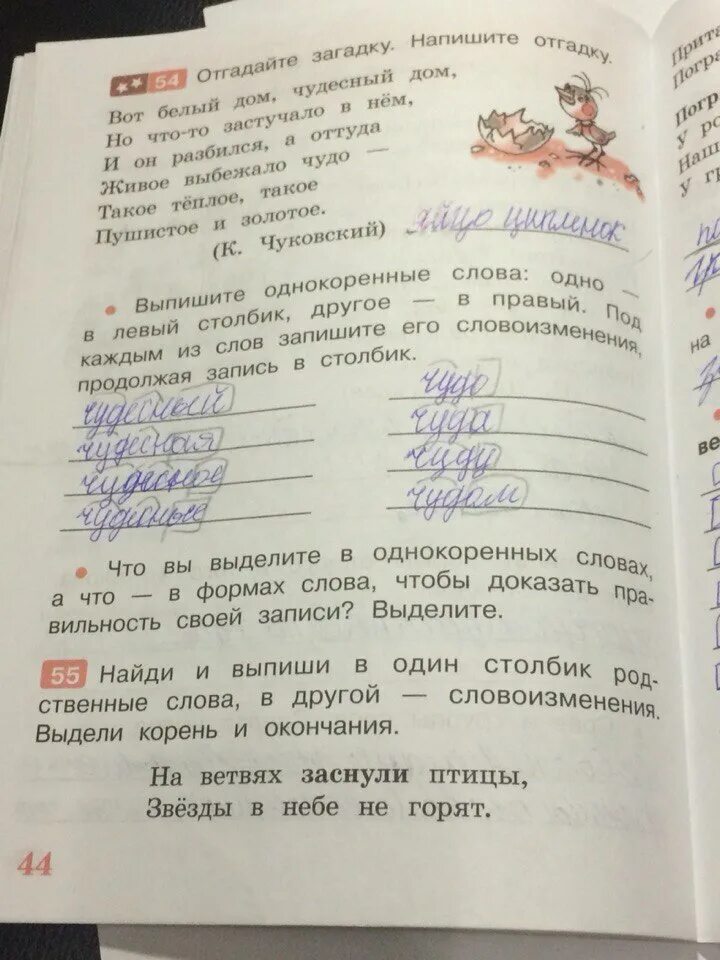 54 Отгадайте загадку. Напишите отгадку.
Вот белый дом, чудесный дом,
Но что-то застучало в нём,
И он разбился, а оттуда
Живое выбежало чудо —
Такое тёплое, такое
Пушистое и золотое.
(К. Чуковский) яйцо ципленок
• Выпишите однокоренные слова: одно —
в левый столбик, другое — в правый. Под
каждым из слов запишите его словоизменения,
продолжая запись в столбик.
чудесный чудо
чудесная чуда
чудесное чуду
чудесные чудом
• Что вы выделите в однокоренных словах,
а что — в формах слова, чтобы доказать пра-
вильность своей записи? Выделите.
55 Найди и выпиши в один столбик род-
ственные слова, в другой — словоизменения.
Выдели корень и окончания.
На ветвях заснули птицы,
Звёзды в небе не горят.
44